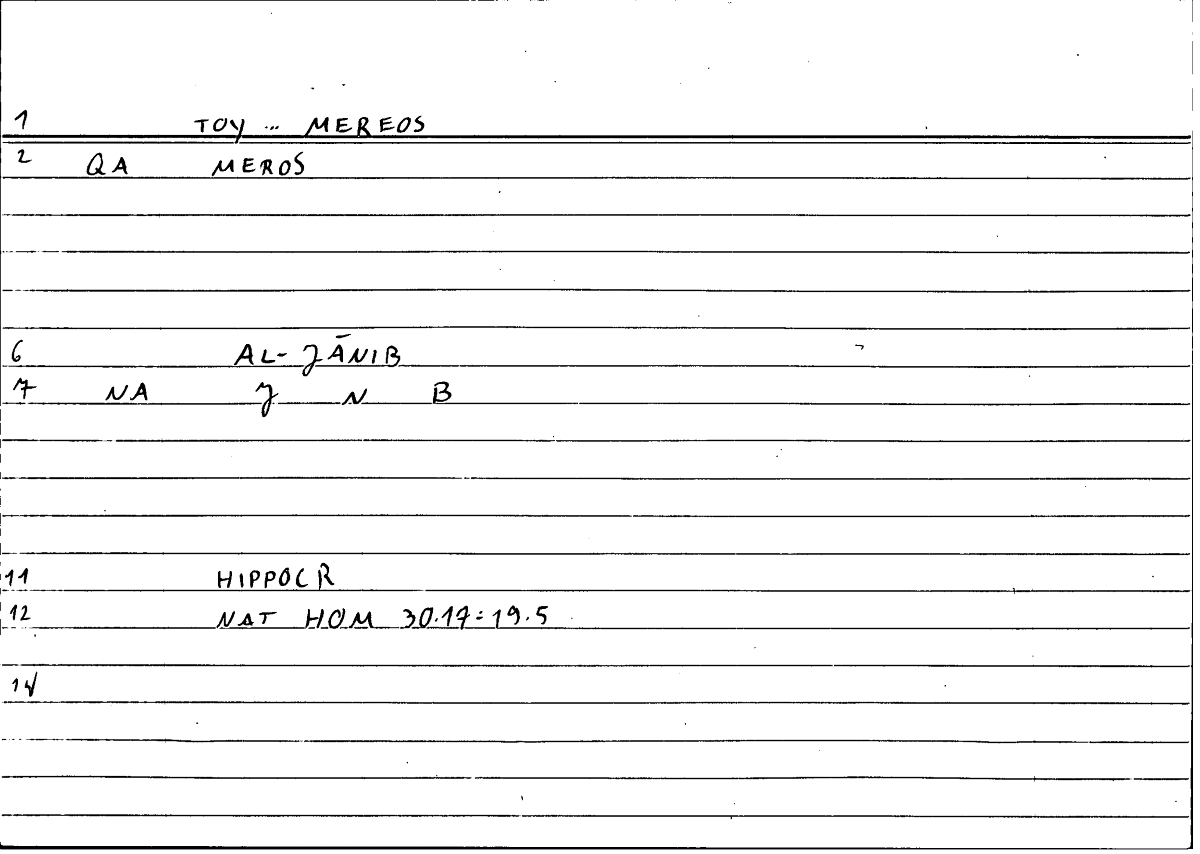 1 TOY ... MEREOS
2 QA MEROS
6 AL-JĀNIB
7 NA J N B
11 HIPPOCR
12 NAT HOM 30.17=19.5
14